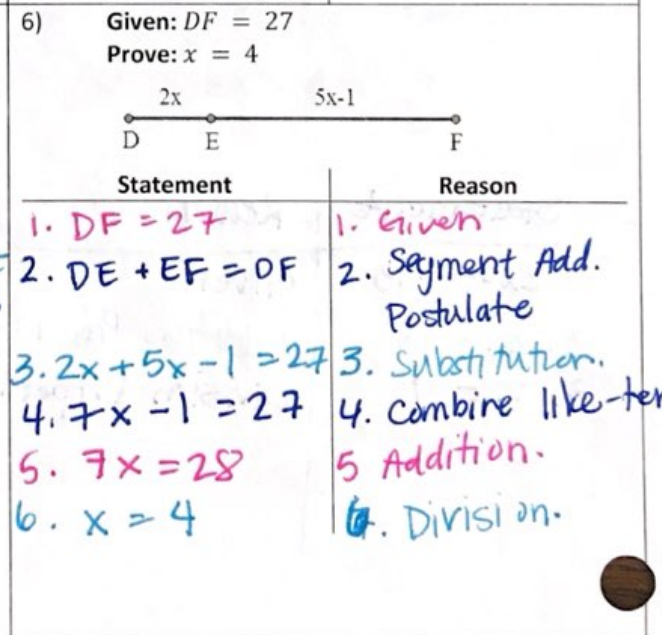 6) Given: DF = 27
Prove: x = 4
2x 5x-1
D E F
Statement Reason
1. DF = 27 1. Given
2. DE + EF = DF 2. Segment Add.
Postulate
3. 2x + 5x - 1 = 27 3. Substitution.
4. 7x - 1 = 27 4. Combine like-ter
5. 7x = 28 5 Addition.
6. x = 4 6. Division.